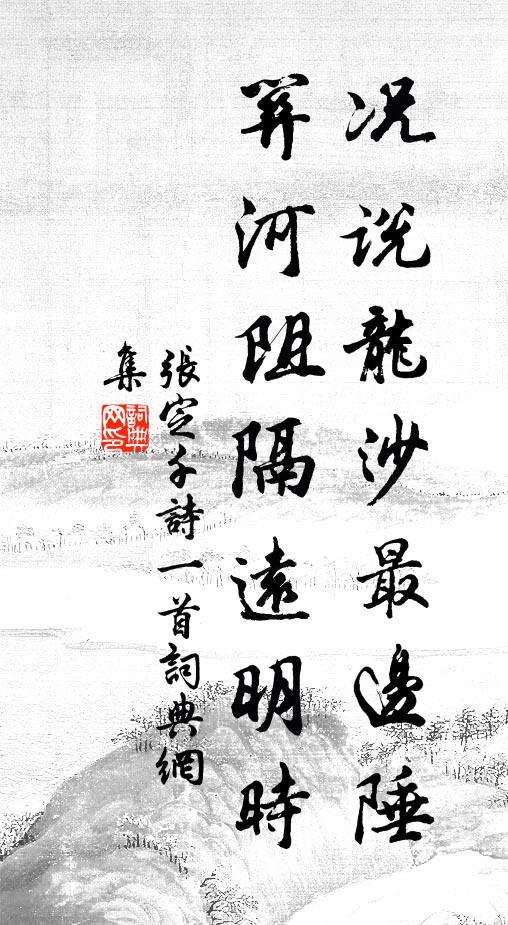 况説龍沙最邊陲
關河阻隔遠明時
張定子詩一首詞典網
集
詞典
網印